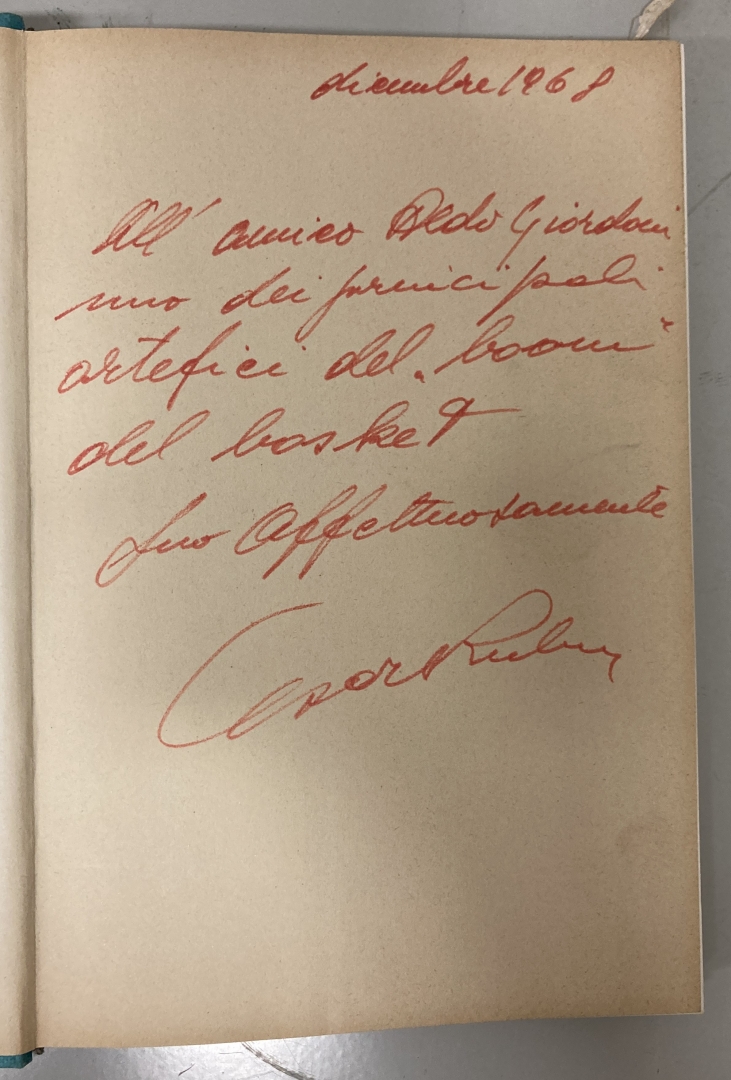 dicembre 1968
All' amico Aldo Giordani
uno dei principali
artefici del "boom"
del basket
suo Affettuosamente
Cesare Rubini